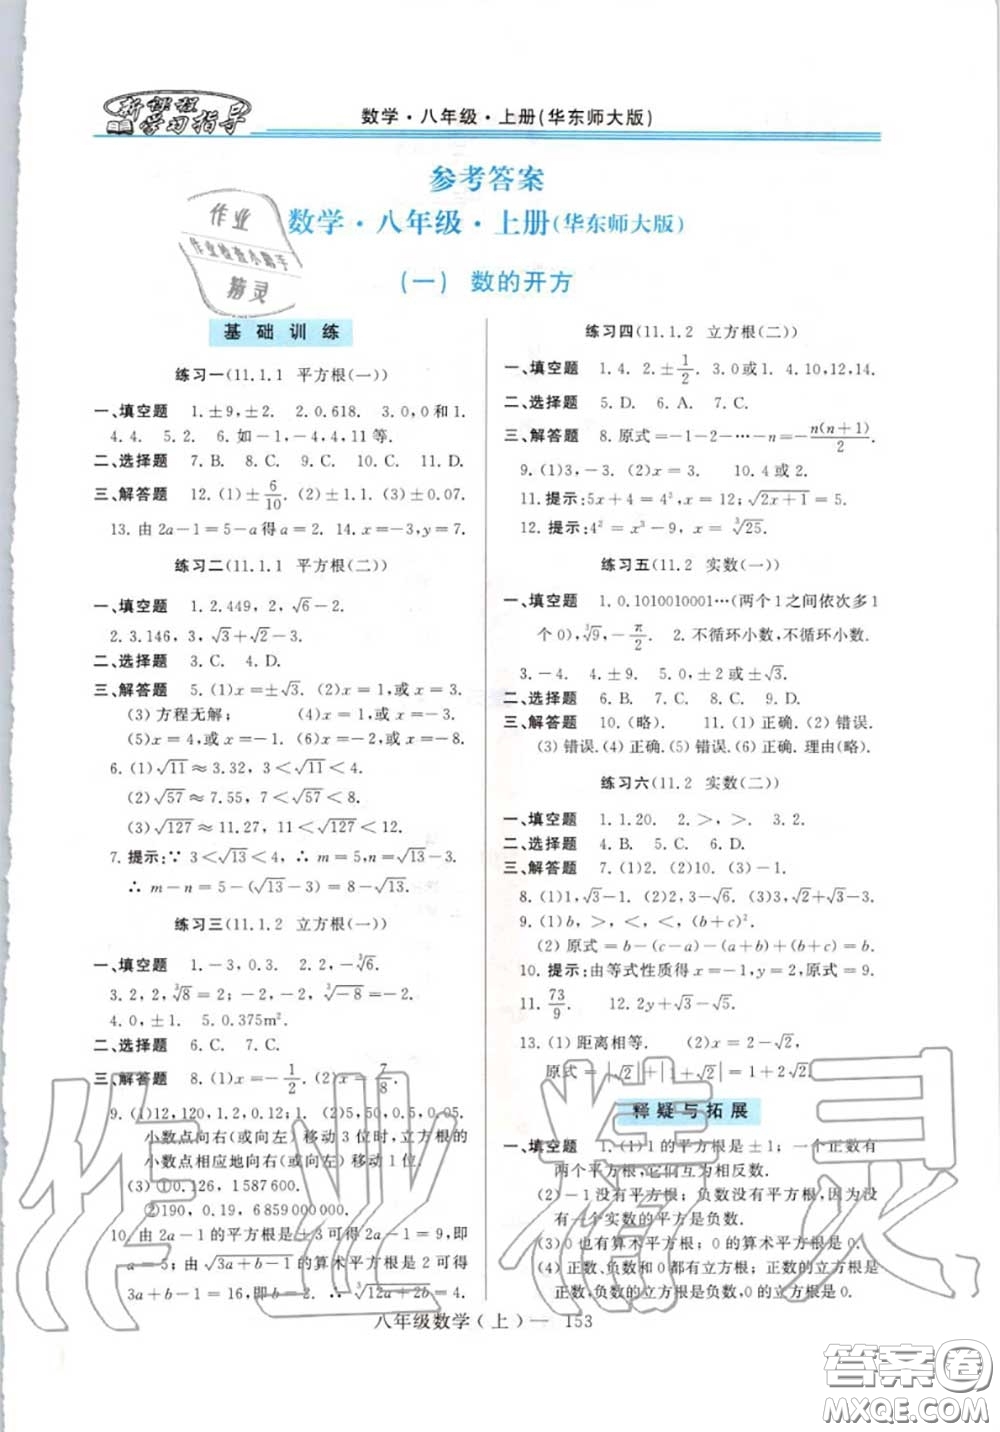 新课程
学习指导
数学·八年级·上册(华东师大版)
参考答案
数学·八年级·上册(华东师大版)
(一) 数的开方
作业
作业检查小助手
精灵
基础训练
练习一(11.1.1 平方根(一))
一、填空题 1.±9,±2. 2.0.618. 3.0,0和1.
4.4. 5.2. 6.如-1,-4,4,11等.
二、选择题 7.B. 8.C. 9.C. 10.C. 11.D.
三、解答题 12.(1)±6/10. (2)±1.1. (3)±0.07.
13.由2a-1=5-a得a=2. 14.x=-3,y=7.
练习二(11.1.1 平方根(二))
一、填空题 1.2.449,2,√6-2.
2.3.146,3,√3+√2-3.
二、选择题 3.C. 4.D.
三、解答题 5.(1)x=±√3. (2)x=1,或x=3.
(3)方程无解; (4)x=1,或x=3.
(5)x=4,或x=-1. (6)x=-2,或x=-8.
6.(1)√11≈3.32,3<√11<4.
(2)√57≈7.55,7<√57<8.
(3)√127≈11.27,11<√127<12.
7.提示:∵3<√13<4,∴m=5,n=√13-3.
∴m-n=5-(√13-3)=8-√13.
练习三(11.1.2 立方根(一))
一、填空题 1.-3,0.3. 2.2,-∛6.
3.2,2,∛8=2;-2,-2,∛-8=-2.
4.0,±1. 5.0.375m².
二、选择题 6.C. 7.C.
三、解答题 8.(1)x=-1/2. (2)x=7/8.
9.(1)12,120,1.2,0.12;1. (2)5,50,0.5,0.05.
小数点向右(或向左)移动3位时,立方根的
小数点相应地向右(或向左)移动1位.
(3)①0.126,1587600.
②190,0.19,6859000000.
10.由2a-1的平方根是±3可得2a-1=9,即
a=5;由√3a+b-1的算术平方根是2可得
3a+b-1=16,即b=2.∴∛12a+2b=4.
练习四(11.1.2 立方根(二))
一、填空题 1.4. 2.±1/2. 3.0或1. 4.10,12,14.
二、选择题 5.D. 6.A. 7.C.
三、解答题 8.原式=-1-2-…-n=-n(n+1)/2.
9.(1)3,-3. (2)x=3. 10.4或2.
11.提示:5x+4=4³,x=12;√2x+1=5.
12.提示:4²=x³-9,x=∛25.
练习五(11.2 实数(一))
一、填空题 1.0.1010010001…(两个1之间依次多1
个0),∛9,-π/2. 2.不循环小数,不循环小数.
3.-4. 4.±9. 5.±2或±√3.
二、选择题 6.B. 7.C. 8.C. 9.D.
三、解答题 10.(略). 11.(1)正确.(2)错误.
(3)错误.(4)正确.(5)错误.(6)正确.理由(略).
练习六(11.2 实数(二))
一、填空题 1.1.20. 2.>,>. 3.2.
二、选择题 4.B. 5.C. 6.D.
三、解答题 7.(1)2. (2)10. (3)-1.
8.(1)1,√3-1. (2)2,3-√6. (3)10,√103-10.
9.(1)b,>,<,<,(b+c)².
(2)原式=b-(c-a)-(a+b)+(b+c)=b.
10.提示:由等式性质得x=-1,y=2,原式=9.
11.73/9. 12.2y+√3-√5.
13.(1)距离相等. (2)x=2-√2,
原式=|√2|+|1+√2|=1+2√2.
释疑与拓展
一、填空题 1.(1)1的平方根是±1;一个正数有
两个平方根,它们互为相反数.
(2)-1没有平方根;负数没有平方根,因为没
有一个实数的平方是负数.
(3)0也有算术平方根;0的算术平方根是0.
(4)正数、负数和0都有立方根;正数的立方根
是正数,负数的立方根是负数,0的立方根是0.
八年级数学(上)— 153
作业精灵
答案圈
MXQE.COM